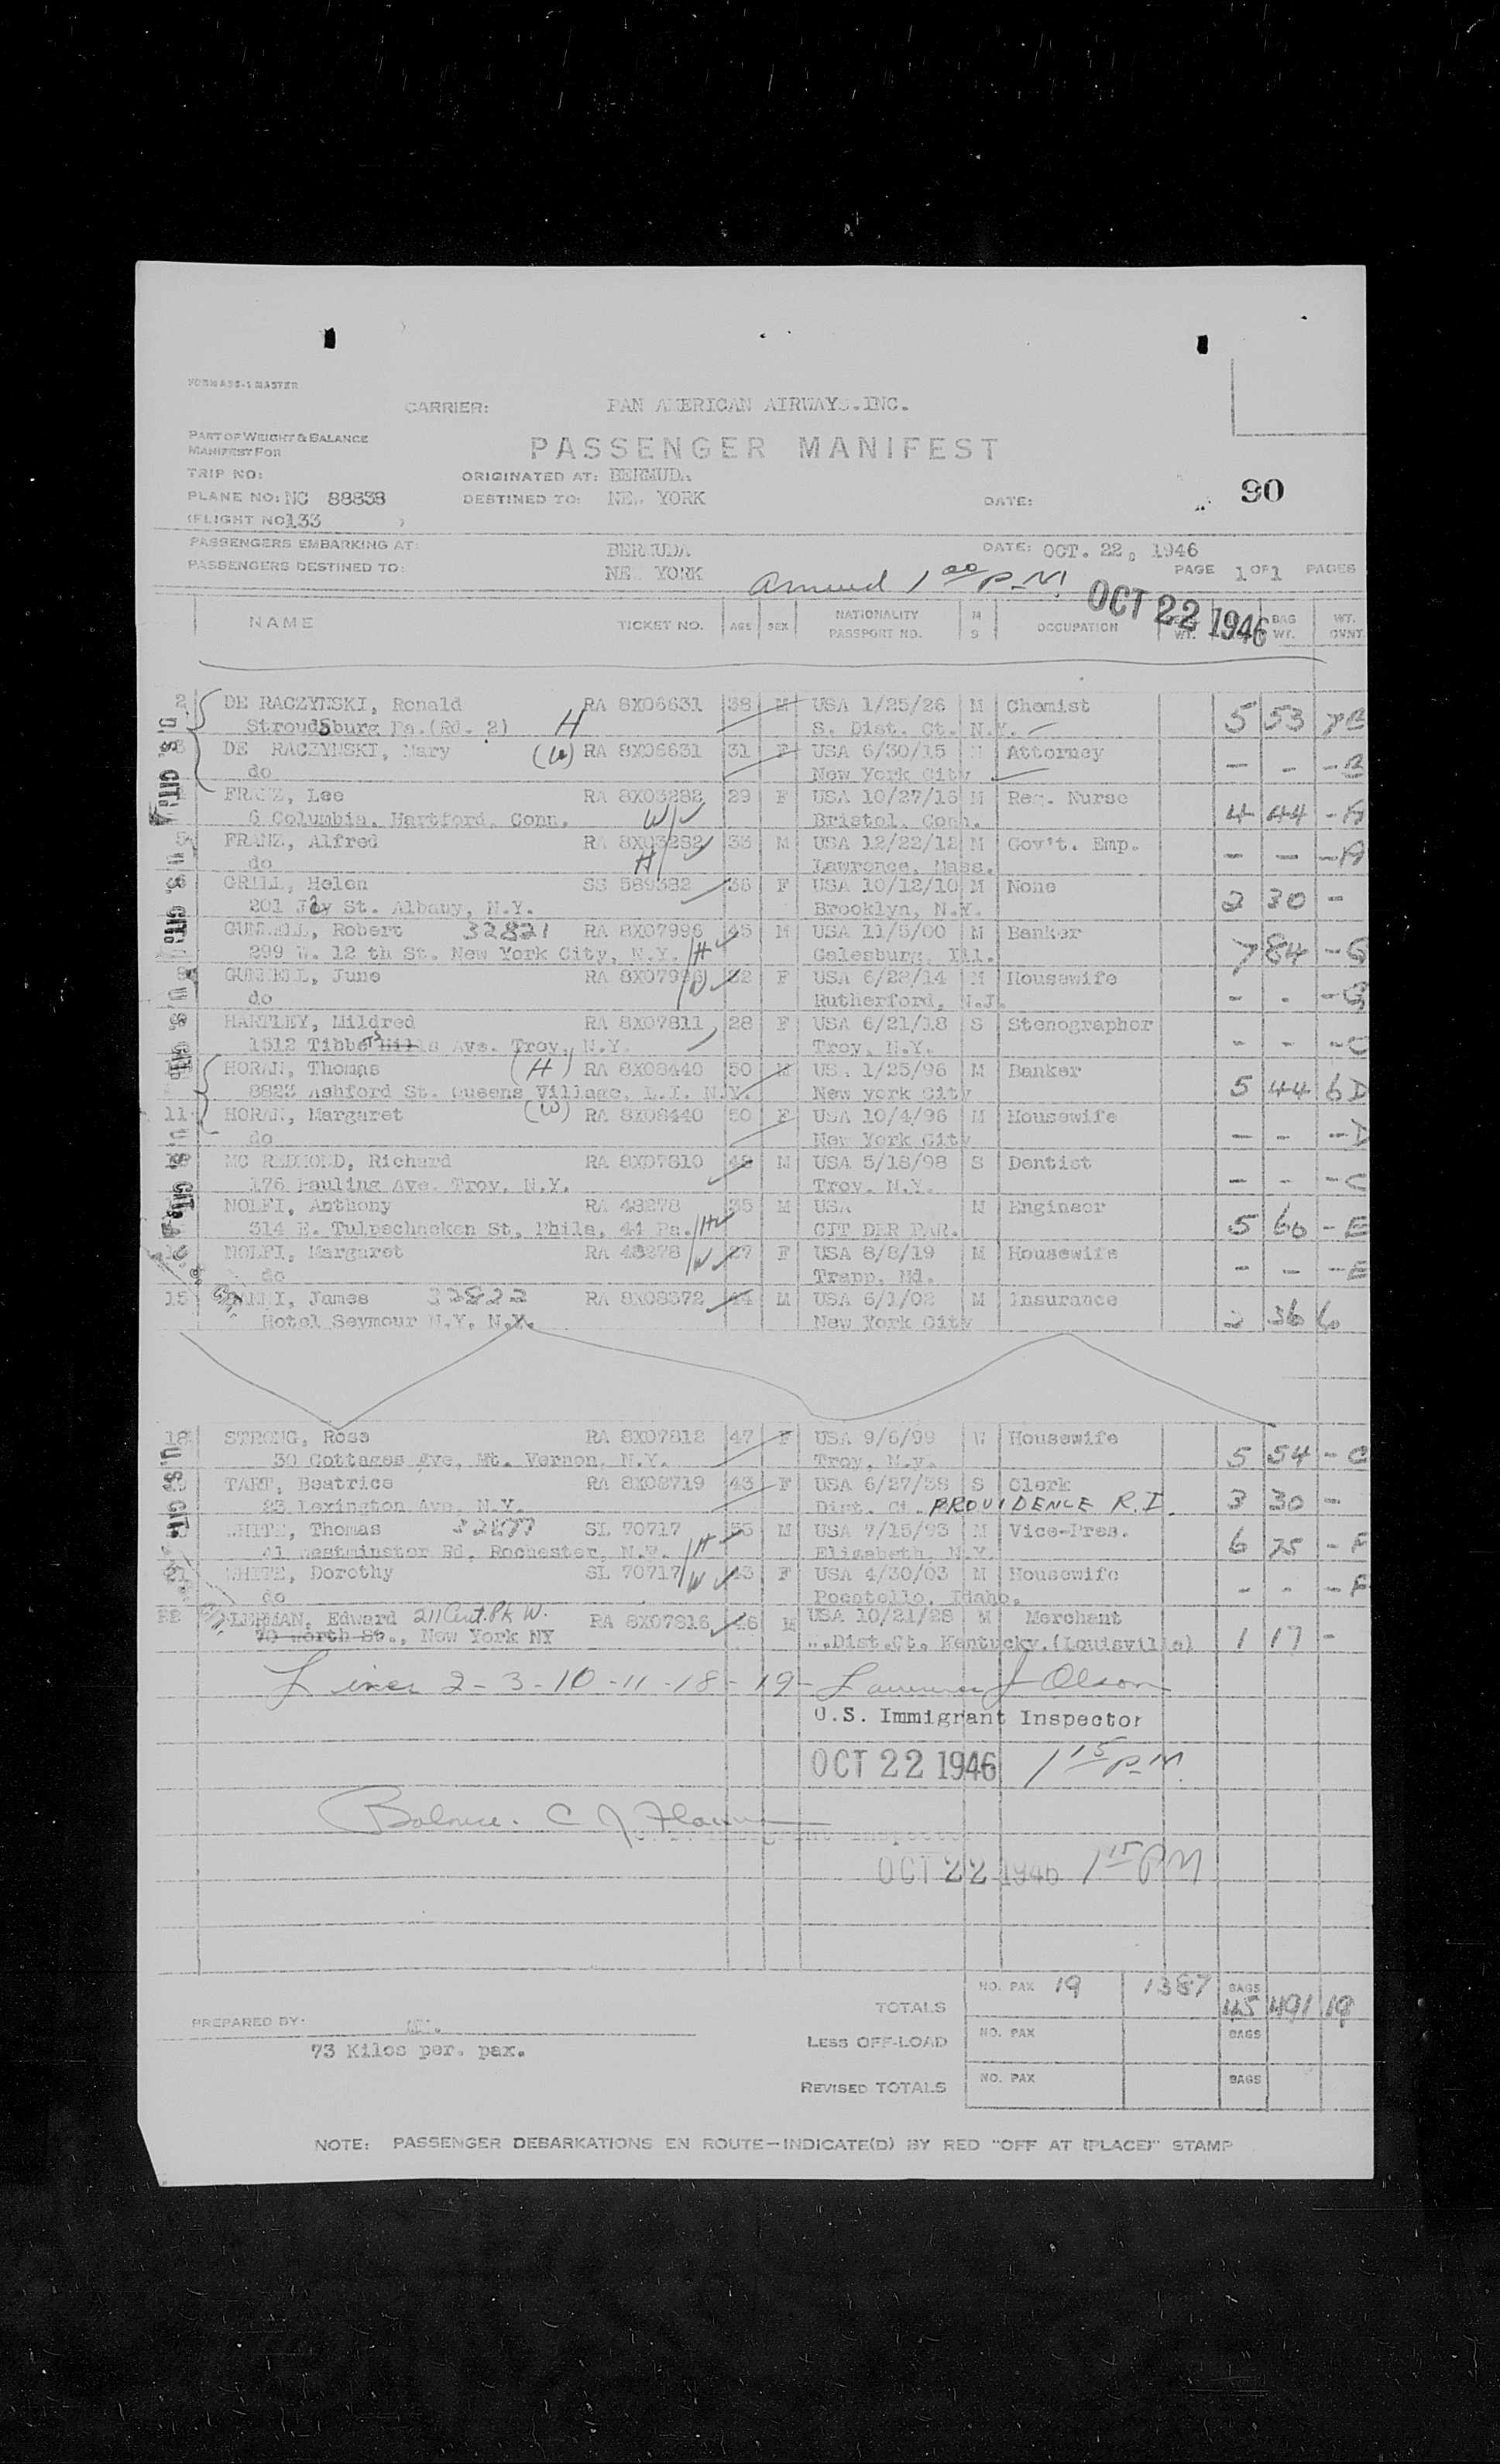 FORM ASS-1 MASTER
CARRIER: PAN AMERICAN AIRWAYS.INC.
PART OF WEIGHT & BALANCE
MANIFEST FOR
PASSENGER MANIFEST
TRIP NO: ORIGINATED AT: BERMUDA
PLANE NO: NC 88838 DESTINED TO: NEW YORK DATE: 90
(FLIGHT NO 133 )
PASSENGERS EMBARKING AT: BERMUDA DATE: OCT. 22, 1946
PASSENGERS DESTINED TO: NEW YORK PAGE 1 OF 1 PAGES
1 00 P.M. OCT 22 1946
NAME TICKET NO. AGE SEX NATIONALITY PASSPORT NO. M S OCCUPATION WT. BAG WT. WT. OVNT.
2 DE RACZYNSKI, Ronald RA 8X06631 38 M USA 1/25/26 M Chemist 5 53 7B
StroudSburg Pa.(Rd. 2) H S. Dist. Ct. N.Y.
3 DE RACZYNSKI, Mary (W) RA 8X06631 31 F USA 6/30/15 M Attorney - - -B
do New York City
FRANZ, Lee RA 8X03282 29 F USA 10/27/16 M Reg. Nurse 4 44 -A
6 Columbia, Hartford, Conn. W Bristol, Conn.
5 FRANZ, Alfred RA 8X03282 33 M USA 12/22/12 M Gov't. Emp. - - -A
do H Lawrence, Mass.
6 GRILL, Helen SS 589382 36 F USA 10/12/10 M None 2 30 -
201 Jay St. Albany, N.Y. Brooklyn, N.Y.
GUNNELL, Robert 32821 RA 8X07996 45 M USA 11/5/00 M Banker 7 84 -G
299 W. 12 th St. New York City, N.Y. H Galesburg, Ill.
8 GUNNELL, June RA 8X07996 32 F USA 6/28/14 M Housewife - - -G
do W Rutherford, N.J.
HARTLEY, Mildred RA 8X07811 28 F USA 6/21/18 S Stenographer - - -C
1512 Tibbets Ave. Troy, N.Y. Troy, N.Y.
HORAN, Thomas (H) RA 8X08440 50 M USA 1/25/96 M Banker 5 44 6D
8823 Ashford St. Queens Village, L.I. N.Y. New York City
11 HORAN, Margaret (W) RA 8X08440 50 F USA 10/4/96 M Housewife - - -D
do New York City
MC REDMOND, Richard RA 8X07810 48 M USA 5/18/98 S Dentist - - -C
176 Pauling Ave. Troy, N.Y. Troy, N.Y.
NOLFI, Anthony RA 48278 35 M USA M Engineer 5 60 -E
314 E. Tulpechocken St, Phila, 44 Pa. H CIT DER PAR.
NOLFI, Margaret RA 48278 27 F USA 8/8/19 M Housewife - - -E
do W Trapp, Md.
15 James 32822 RA 8X08372 44 M USA 6/1/02 M Insurance 2 36 6
Hotel Seymour N.Y. N.Y. New York City
18 STRONG, Rose RA 8X07812 47 F USA 9/6/99 W Housewife 5 54 -C
30 Cottages Ave, Mt. Vernon, N.Y. Troy, N.y.
TART, Beatrice RA 8X08719 43 F USA 6/27/38 S Clerk 3 30 -
23 Lexington Ave. N.Y. Dist. Ct. PROVIDENCE R.I.
WHITE, Thomas SL 70717 53 M USA 7/15/93 M Vice-Pres. 6 75 -F
41 Westminster Rd, Rochester, N.Y. H Elizabeth, N.Y.
21 WHITE, Dorothy SL 70717 43 F USA 4/30/03 M Housewife - - -F
do W Pocotello, Idaho.
22 LERMAN, Edward 211 Cent. Pk W. RA 8X07816 46 M USA 10/21/28 M Merchant 1 17 -
70 Worth St., New York NY Dist.Ct. Kentucky.(Louisville)
Lines 2-3-10-11-18-19- Lawrence J Olson
U.S. Immigrant Inspector
OCT 22 1946 1 15 P.M.
Balance. C J
OCT 22 1946 1 15 PM
TOTALS NO. PAX 19 1387 BAGS 45 491 19
PREPARED BY:
73 Kilos per. pax.
LESS OFF-LOAD NO. PAX BAGS
REVISED TOTALS NO. PAX BAGS
NOTE: PASSENGER DEBARKATIONS EN ROUTE—INDICATE(D) BY RED "OFF AT (PLACE)" STAMP